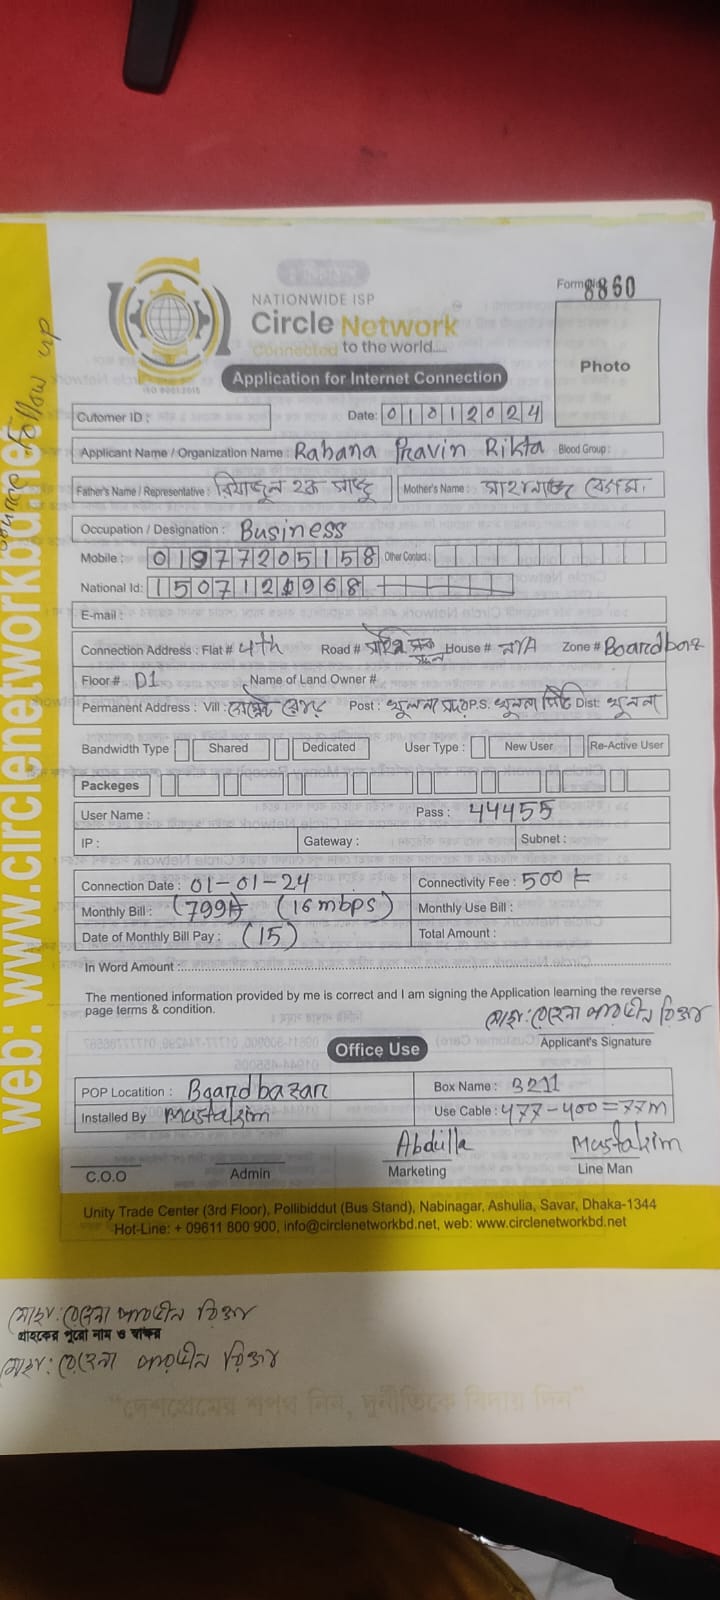 Form No. 8860
NATIONWIDE ISP
Circle Network
Connected to the world.....
ISO 9001:2015
Application for Internet Connection
Photo
Cutomer ID : Date: 01012024
Applicant Name / Organization Name : Rahana Pravin Rikta Blood Group :
Father's Name / Representative : রিয়াজুল হক Mother's Name : বেগম
Occupation / Designation : Business
Mobile : 01977205158 Other Contact :
National Id: 1507121968
E-mail :
Connection Address : Flat # 4th Road # House # N/A Zone # Boardbaz
Floor # D1 Name of Land Owner #
Permanent Address : Vill : Post : খুলনা P.S. খুলনা সিটি Dist: খুলনা
Bandwidth Type Shared Dedicated User Type : New User Re-Active User
Packeges
User Name : Pass : 44455
IP : Gateway : Subnet :
Connection Date : 01-01-24 Connectivity Fee : 500 ৳
Monthly Bill : (799৳ (16 mbps) Monthly Use Bill :
Date of Monthly Bill Pay : (15) Total Amount :
In Word Amount :
The mentioned information provided by me is correct and I am signing the Application learning the reverse
page terms & condition.
Applicant's Signature
Office Use
POP Locatition : Boardbazar Box Name : B211
Installed By Mustakim Use Cable : 477-400=77m
Abdulla Mustakim
C.O.O Admin Marketing Line Man
Unity Trade Center (3rd Floor), Pollibiddut (Bus Stand), Nabinagar, Ashulia, Savar, Dhaka-1344
Hot-Line: + 09611 800 900, info@circlenetworkbd.net, web: www.circlenetworkbd.net
গ্রাহকের পুরো নাম ও স্বাক্ষর
"দেশপ্রেমের শপথ নিন, দুর্নীতিকে বিদায় দিন"
web: www.circlenetworkbd.net
follow up